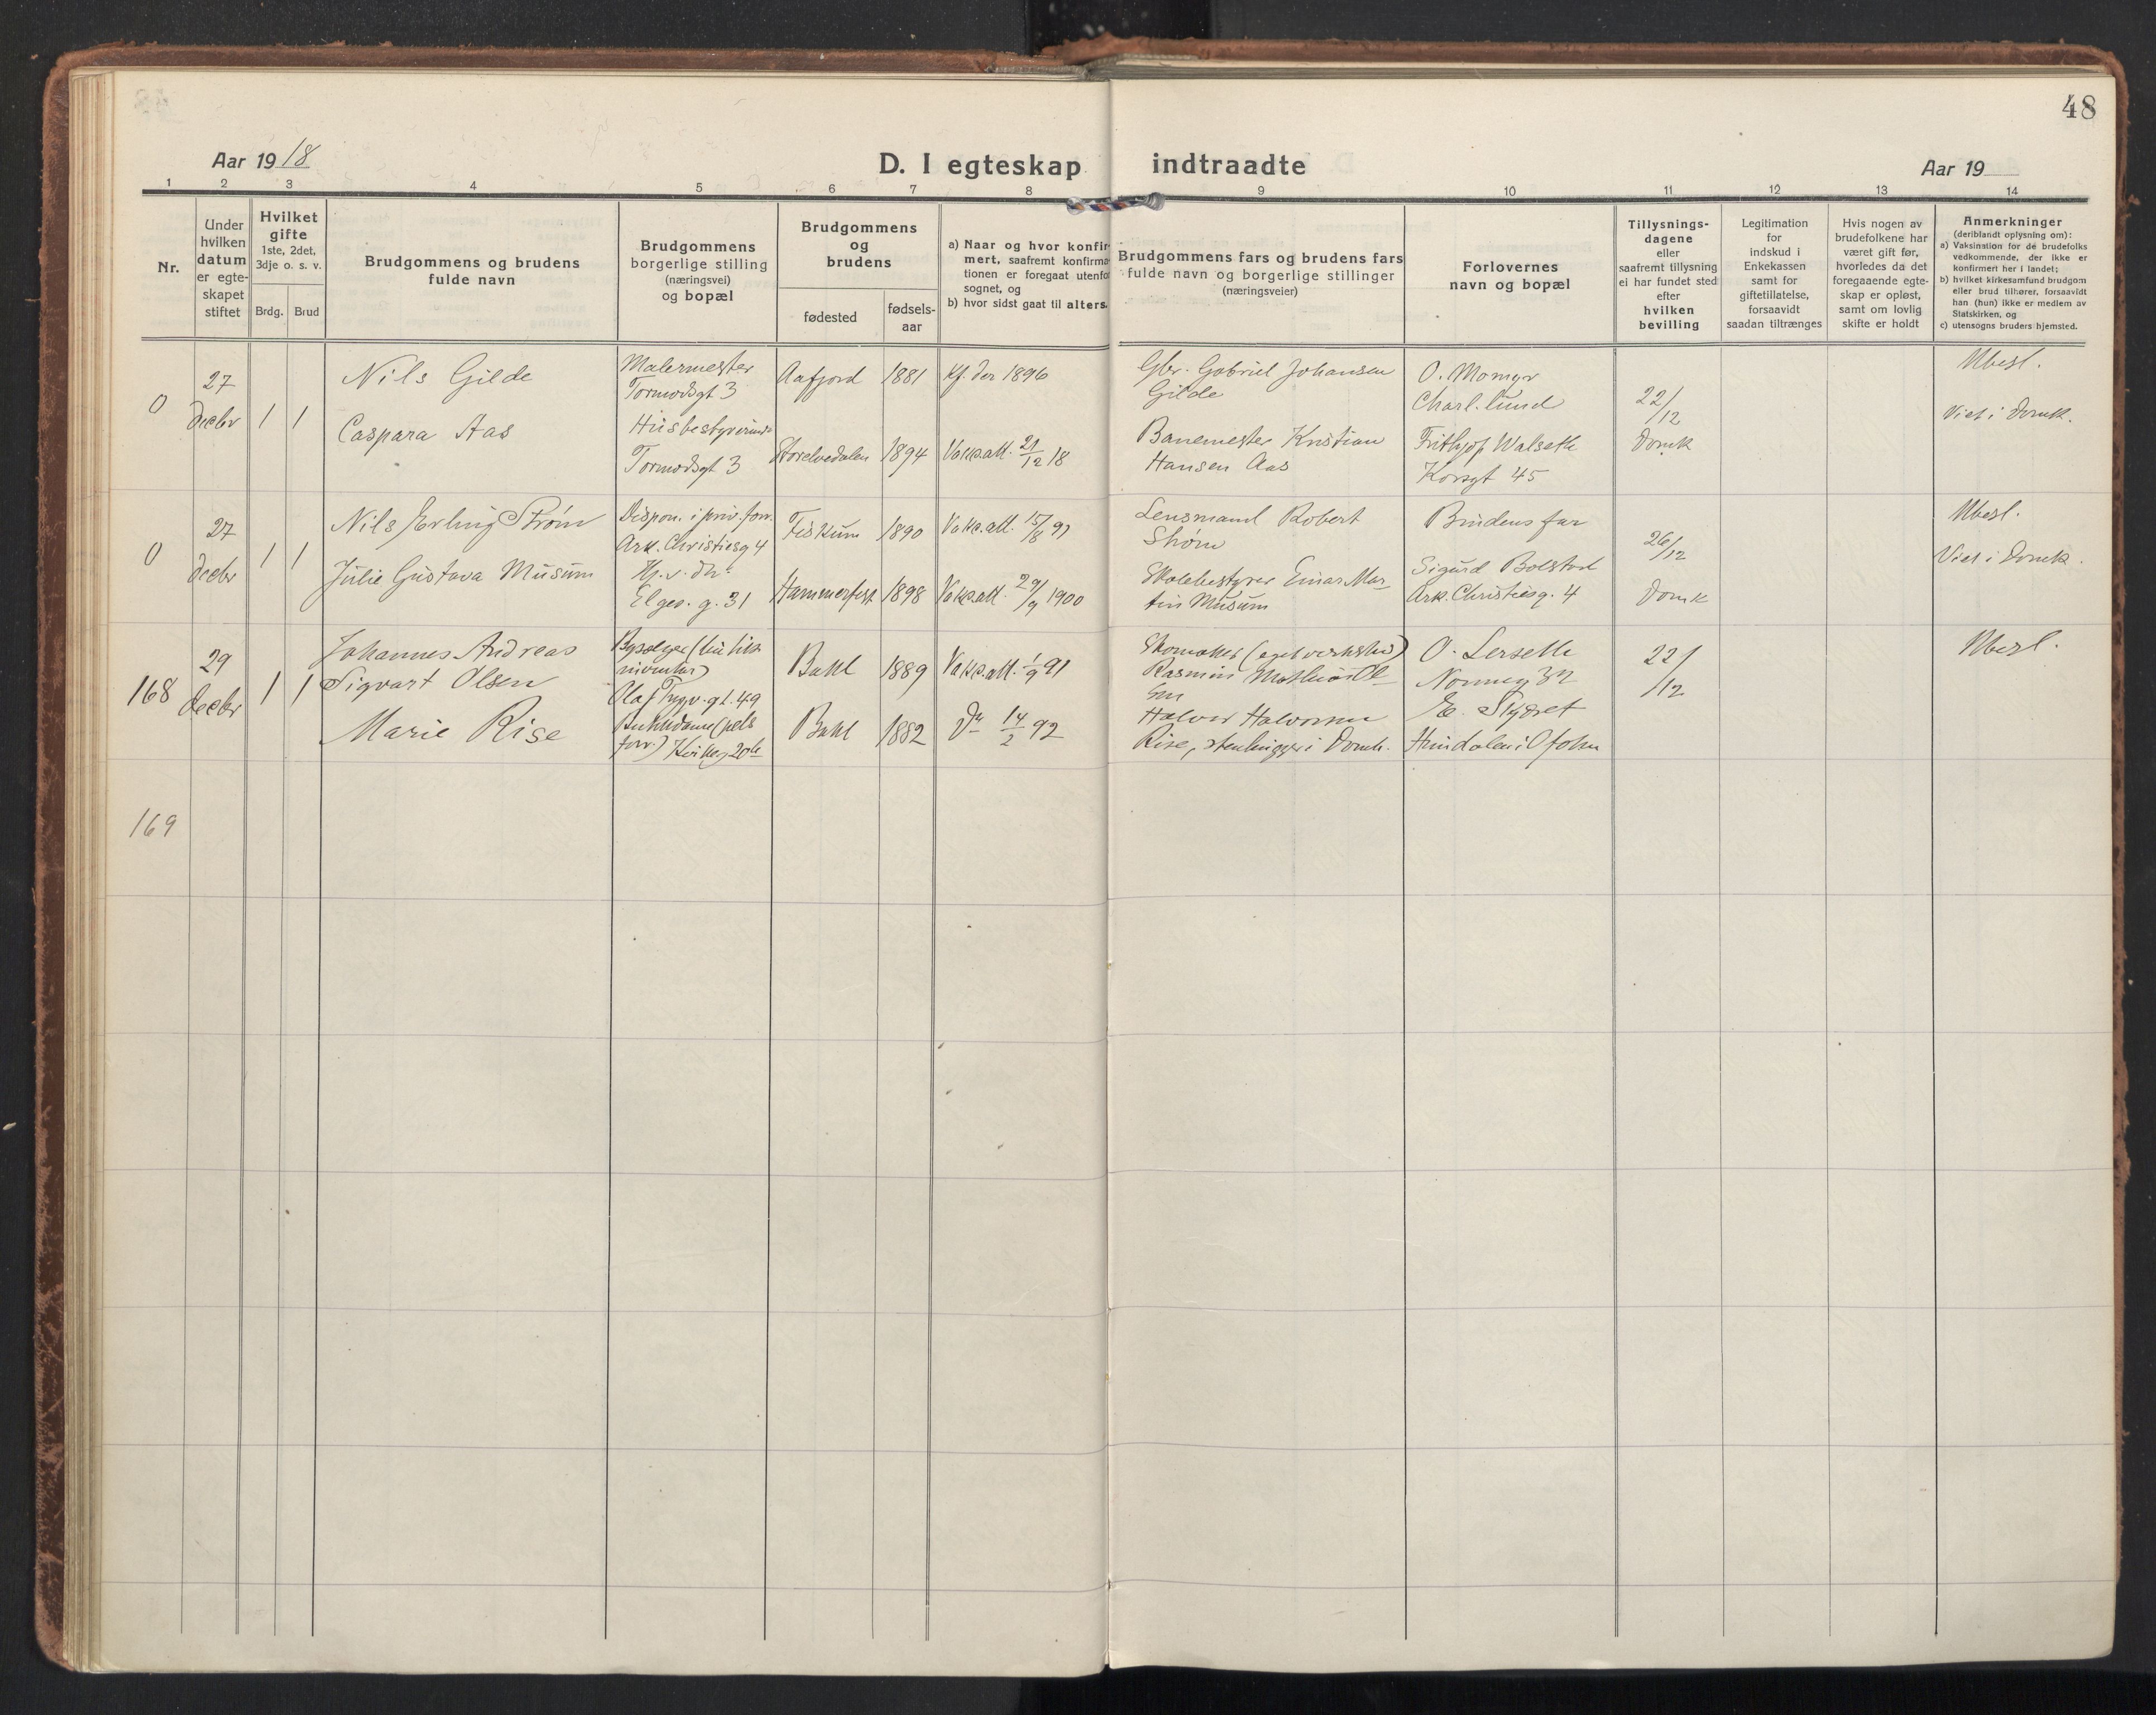 48
Aar 1918
D. I egteskap indtraadte
Aar 19
1 2 3 4 5 6 7 8 9 10 11 12 13 14
Nr.
Under
hvilken
datum
er egte-
skapet
stiftet
Hvilket
gifte
1ste, 2det,
3dje o. s. v.
Brdg. Brud
Brudgommens og brudens
fulde navn
Brudgommens
borgerlige stilling
(næringsvei)
og bopæl
Brudgommens
og
brudens
fødested
fødsels-
aar
a) Naar og hvor konfir-
mert, saafremt konfirma-
tionen er foregaat utenfor
sognet, og
b) hvor sidst gaat til alters.
Brudgommens fars og brudens fars
fulde navn og borgerlige stillinger
(næringsveier)
Forlovernes
navn og bopæl
Tillysnings-
dagene
eller
saafremt tillysning
ei har fundet sted
efter
hvilken
bevilling
Legitimation
for
indskud i
Enkekassen
samt for
giftetillatelse,
forsaavidt
saadan tiltrænges
Hvis nogen av
brudefolkene har
været gift før,
hvorledes da det
foregaaende egte-
skap er opløst,
samt om lovlig
skifte er holdt
Anmerkninger
(deriblandt oplysning om):
a) Vaksination for de brudefolks
vedkommende, der ikke er
konfirmert her i landet;
b) hvilket kirkesamfund brudgom
eller brud tilhører, forsaavidt
han (hun) ikke er medlem av
Statskirken, og
c) utensogns bruders hjemsted.
0
27
decbr
1 1
Nils Gilde
Caspara Aas
Malermester
Tormodsgt 3
Husbestyrerinde
Tormodsgt 3
Aafjord 1881 Kf. der 1896
Storelvedalen 1894 Vakc.att. 21/12 18
Gbr. Gabriel Johansen
Gilde
Banemester Kristian
Hansen Aas
O. Momyr
Charl.lund
Frithjof Walseth
Korsgt 45
22/12
Domk
Ubesl.
Viet i Domk.
0
27
decbr
1 1
Nils Erling Strøm
Julie Gustava Musum
Dispon. i priv. forr.
Ark. Christiesg 4
Hj. v. dr.
Elges. g. 31
Fiskum 1890 Vakc.att. 15/8 97
Hammerfest 1898 Vakc.att. 29/9 1900
Lensmand Robert
Strøm
Skolebestyrer Einar Mar-
tin Musum
Brudens far
Sigurd Bolstad
Ark. Christiesg. 4
26/12
Domk
Ubesl.
Viet i Domk.
168
29
decbr
1 1
Johannes Andreas
Sigvart Olsen
Marie Rise
Olaf Trygv. gt. 49
Bakl 1889 Vakc.att. 1/9 91
Bakl 1882 Do 14/2 92
Skomaker (eget verksted)
Rasmus Mathias Ol-
sen
Halvor Halvorsen
Rise, stenhugger i Domk.
O. Lerseth
E. Skjøret
22/12
Ubesl.
169